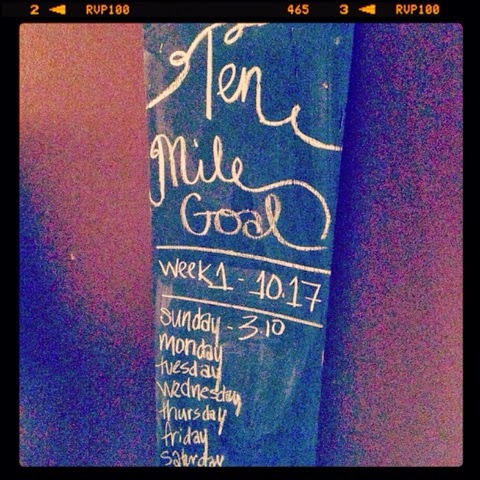 2 RVP100 465 3 RVP100
Ten
Mile
Goal
week 1 - 10.17
sunday - 3.10
monday
tuesday
wednesday
thursday
friday
saturday